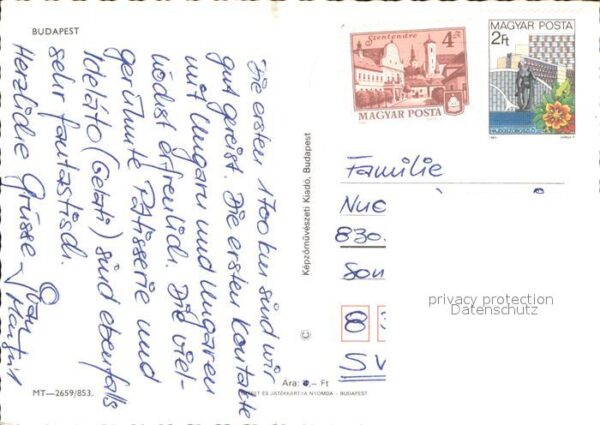 BUDAPEST
Die ersten 1700 km sind wir
gut gereist. Die ersten Kontakte
mit Ungarn und Ungaren
höchst erfreulich. Die viel-
gerühmte Patisserie und
Idelato (Gelati) sind ebenfalls
sehr fantastisch.
Herzliche Grüsse
MT—2659/853.
Képzőművészeti Kiadó, Budapest
Ára: ,– Ft
ÉS JÁTÉKKÁRTYA NYOMDA – BUDAPEST
Szentendre
4 Ft
MAGYAR POSTA
MAGYAR POSTA
2Ft
Familie
Nue
830
Son
8
SV
privacy protection
Datenschutz